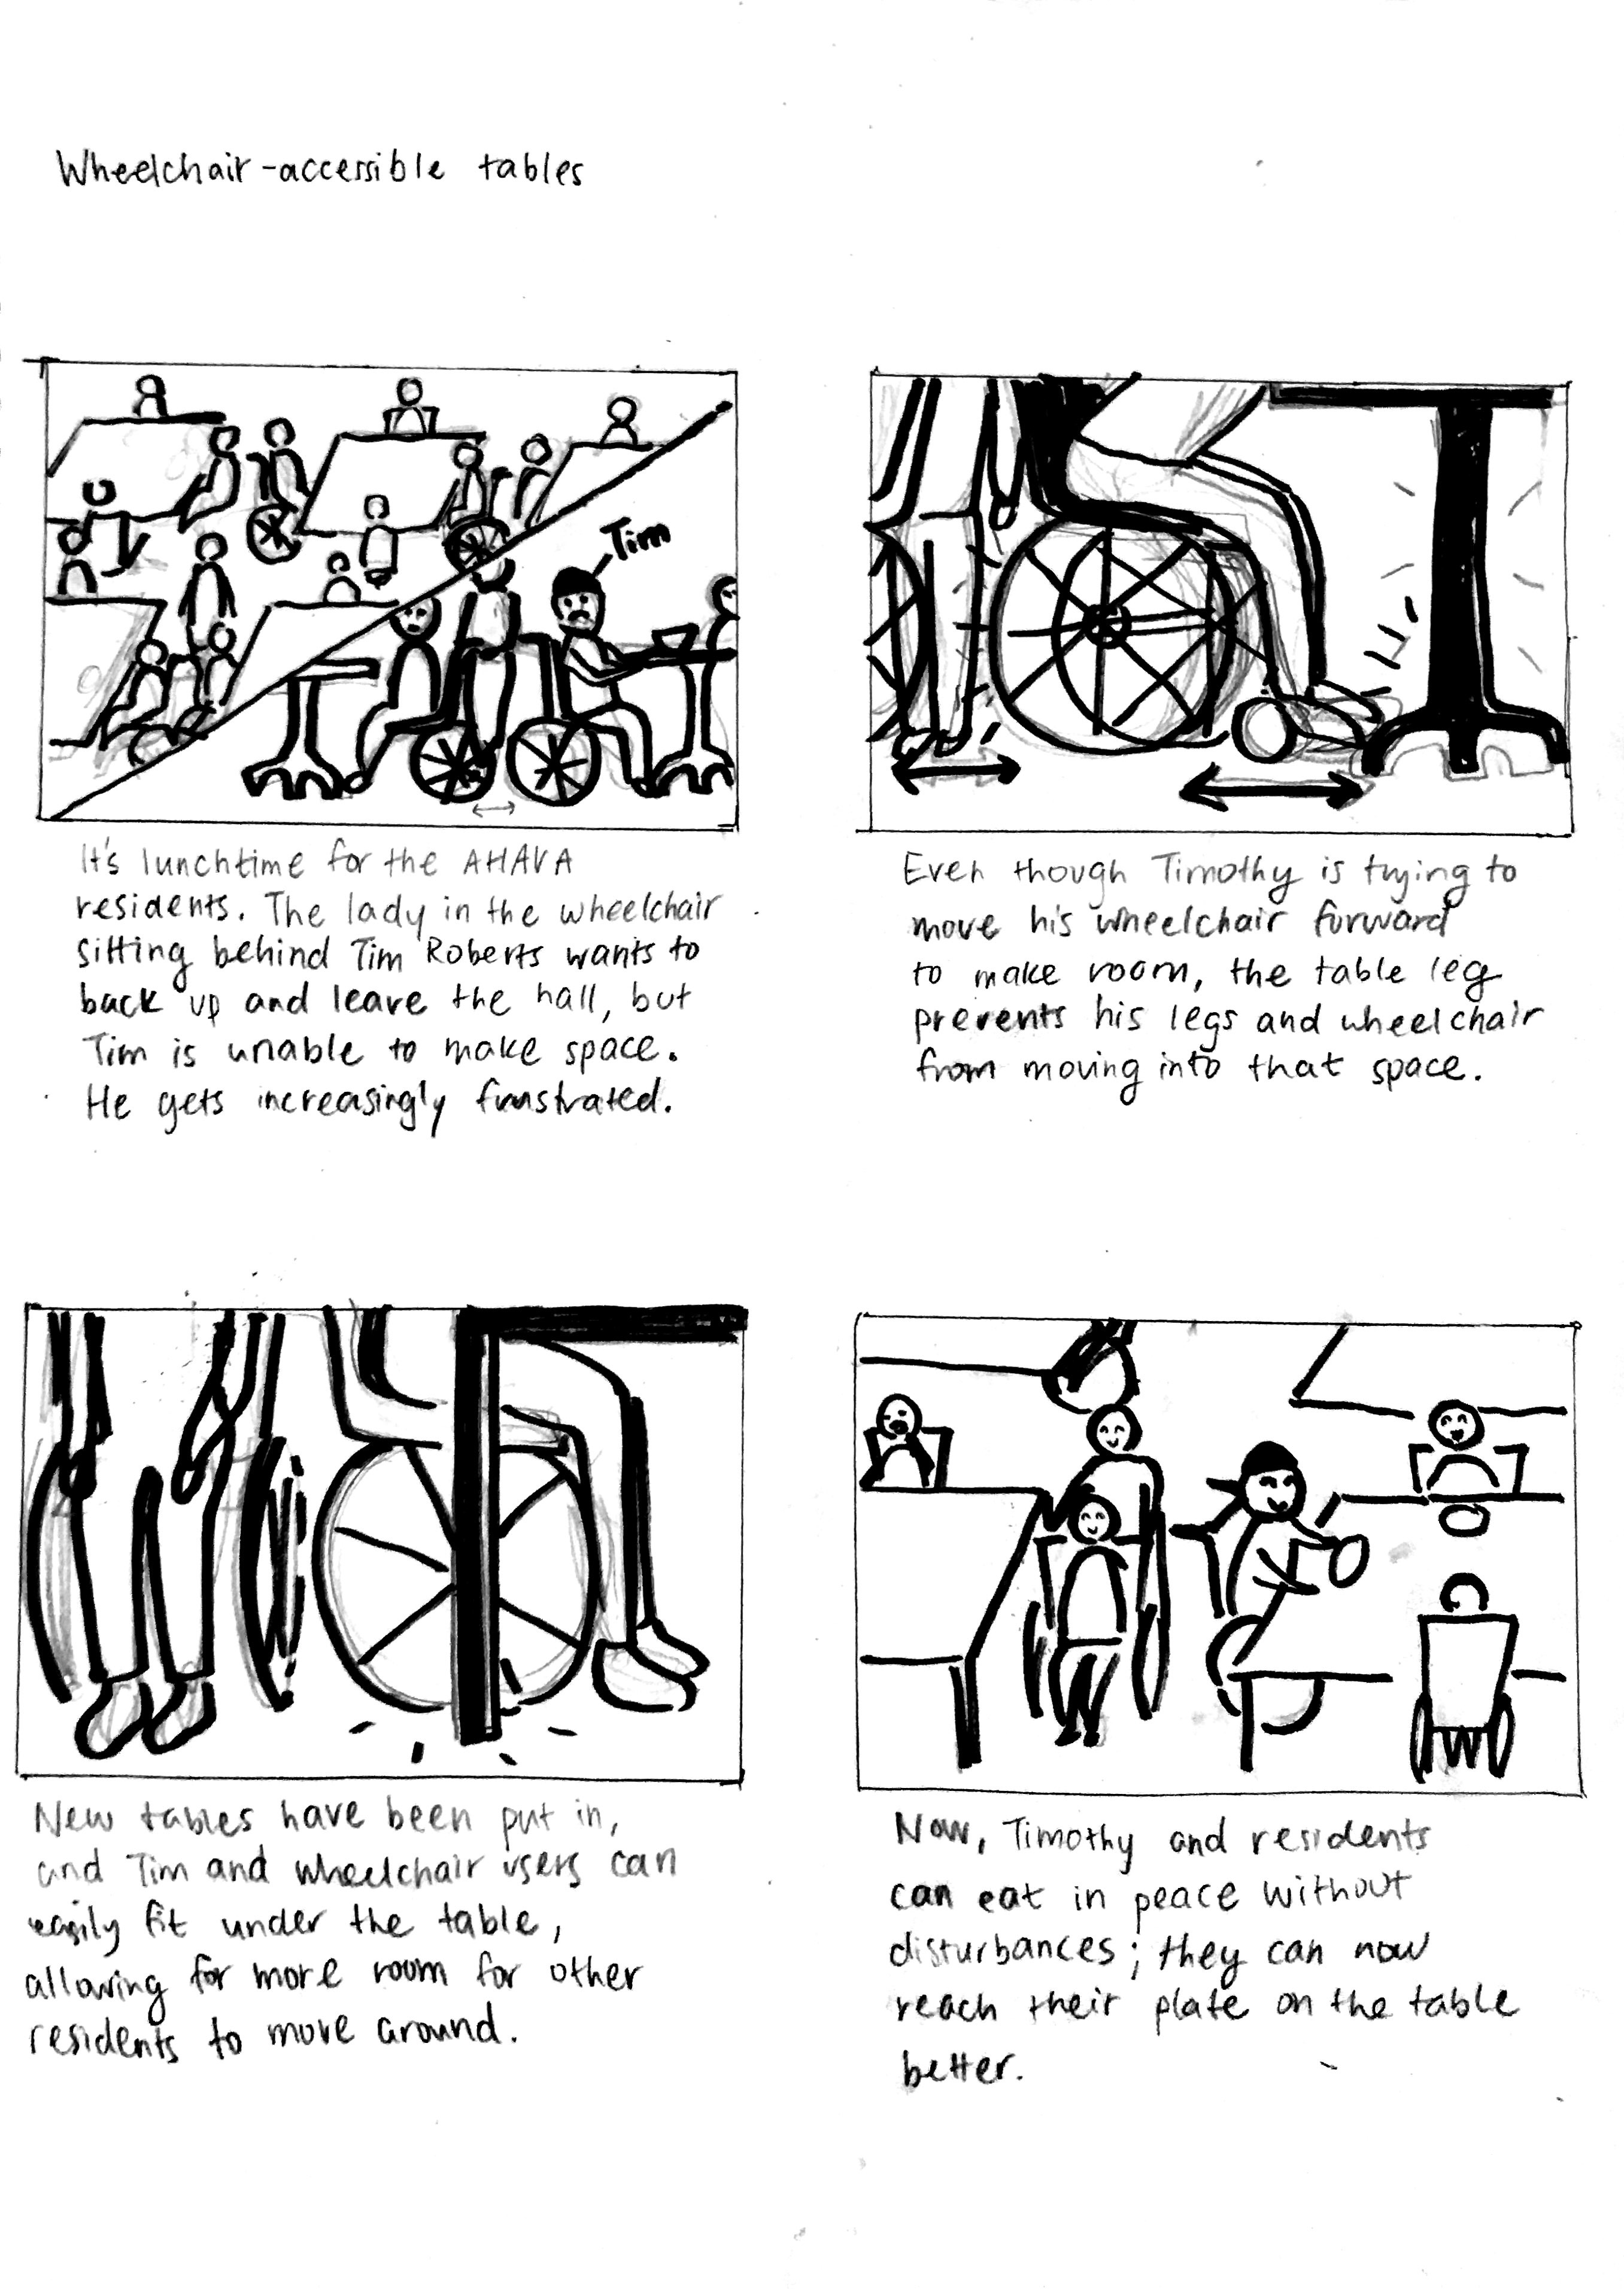 Wheelchair-accessible tables
Tim
It's lunchtime for the AHAVA
residents. The lady in the wheelchair
sitting behind Tim Roberts wants to
back up and leave the hall, but
Tim is unable to make space.
He gets increasingly frustrated.
Even though Timothy is trying to
move his wheelchair forward
to make room, the table leg
prevents his legs and wheelchair
from moving into that space.
New tables have been put in,
and Tim and wheelchair users can
easily fit under the table,
allowing for more room for other
residents to move around.
Now, Timothy and residents
can eat in peace without
disturbances; they can now
reach their plate on the table
better.